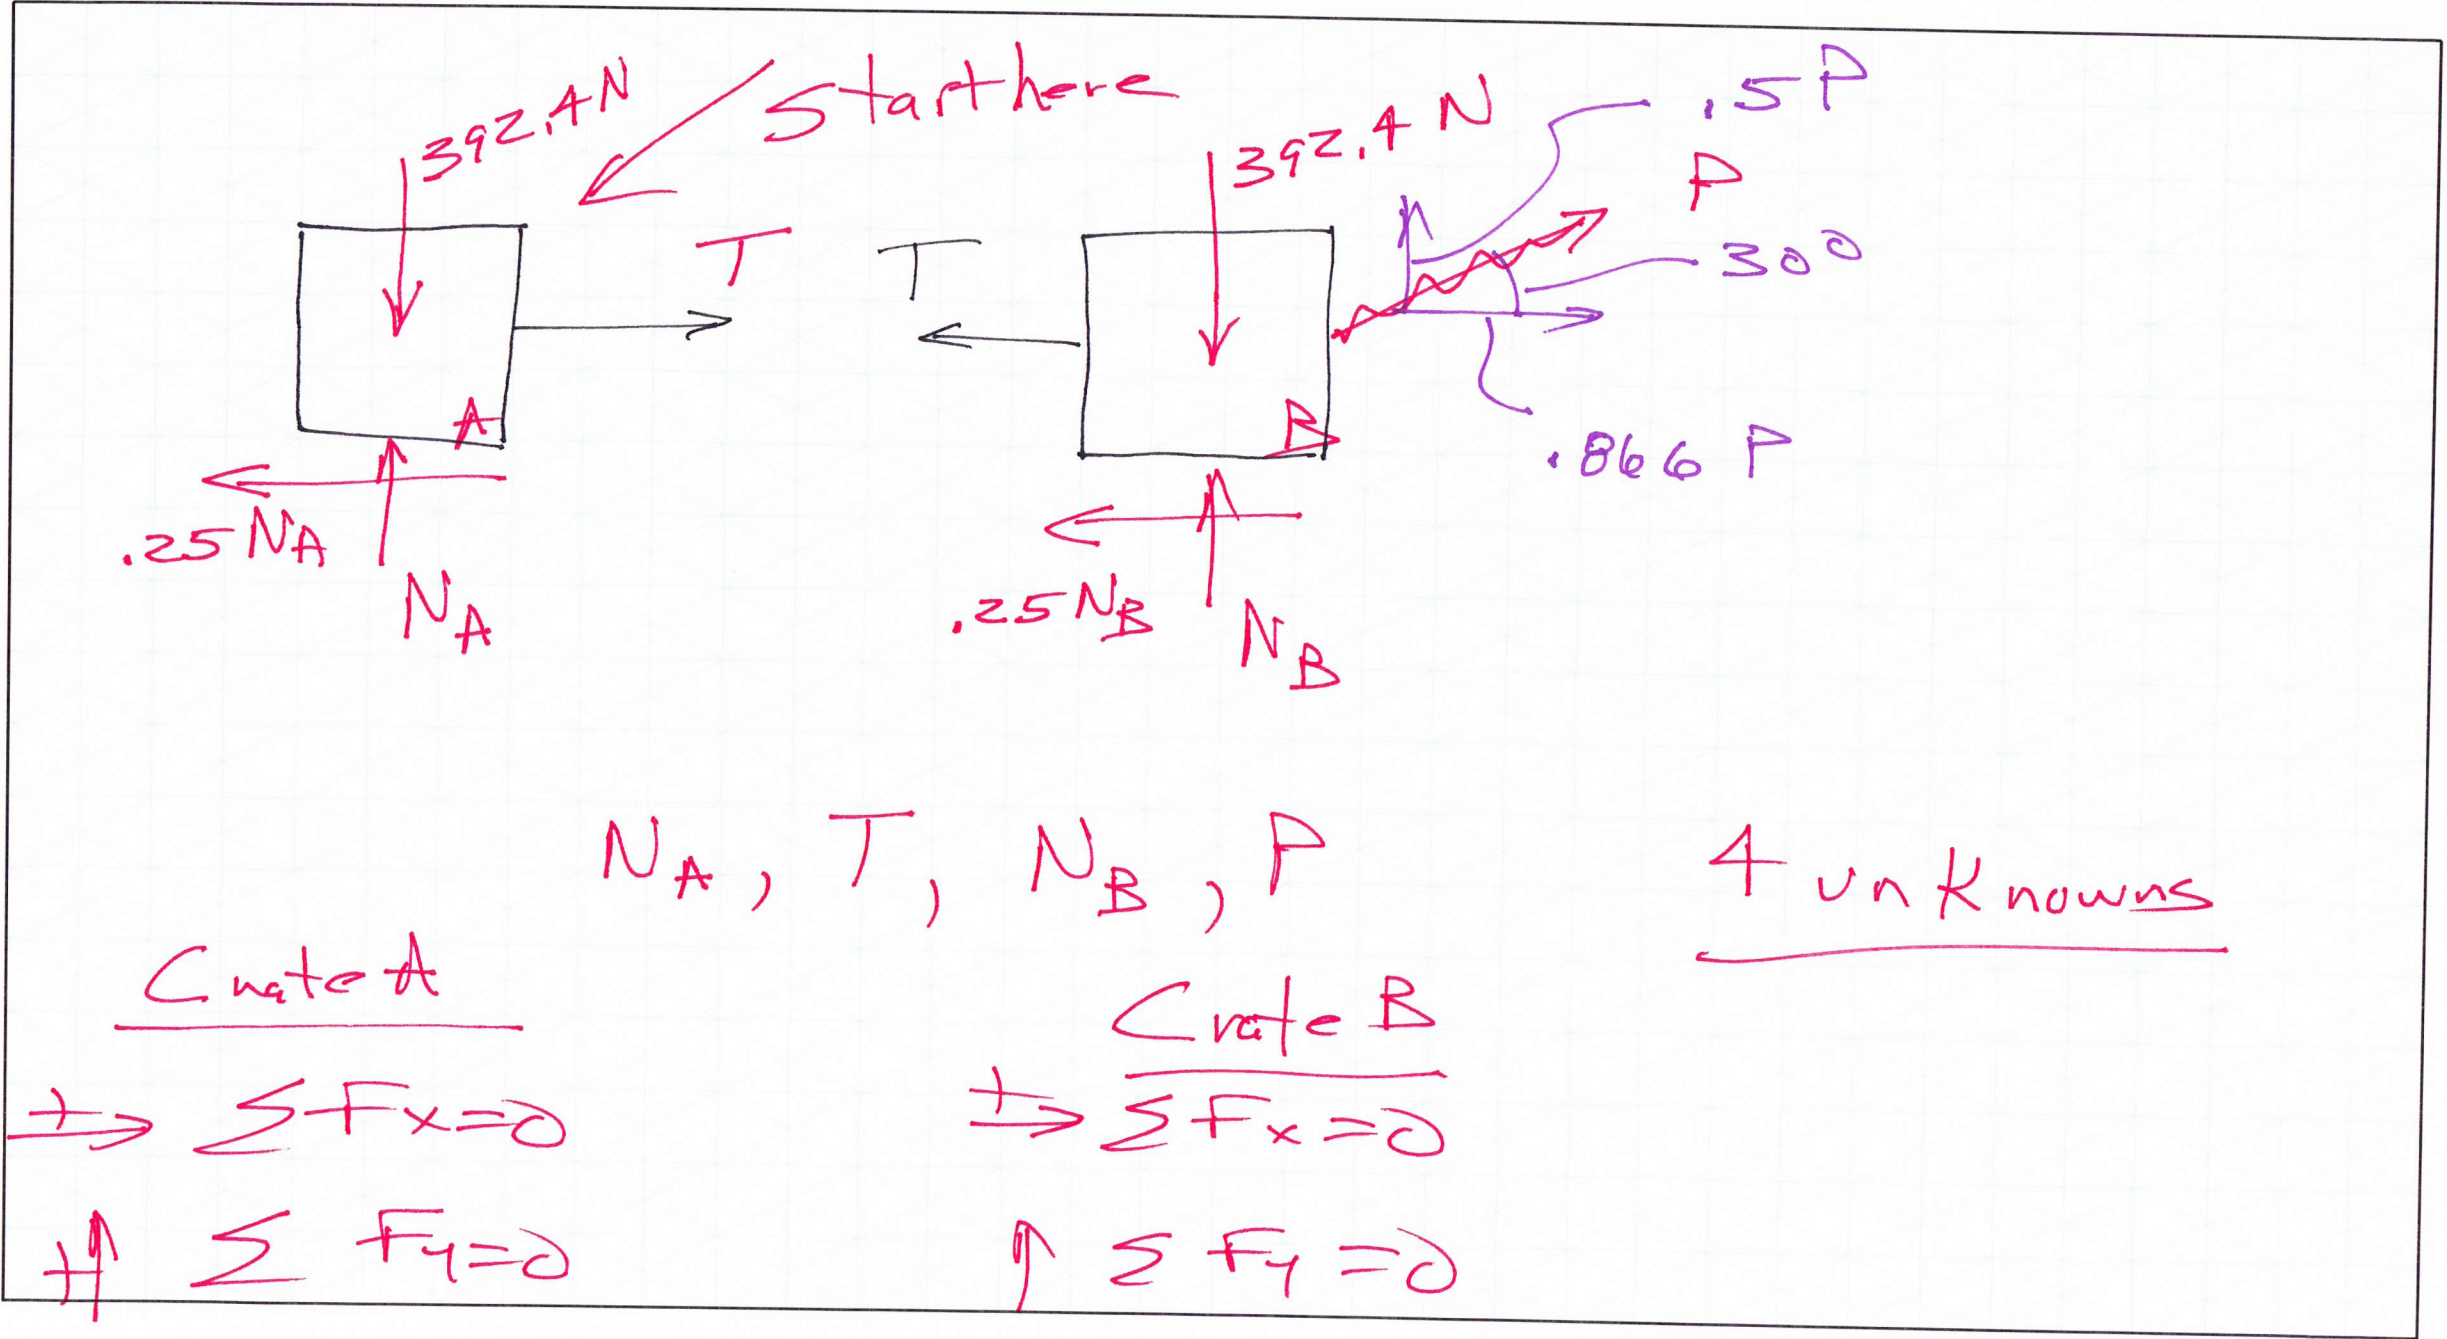 392.4N
Start here
392.4 N
.5P
P
T
T
30°
A
B
.866 P
.25 NA
NA
.25 NB
NB
NA, T, NB, P
4 unknowns
Crate A
Crate B
+→ ΣFx=0
+→ ΣFx=0
+↑ Σ Fy=0
↑ Σ Fy=0